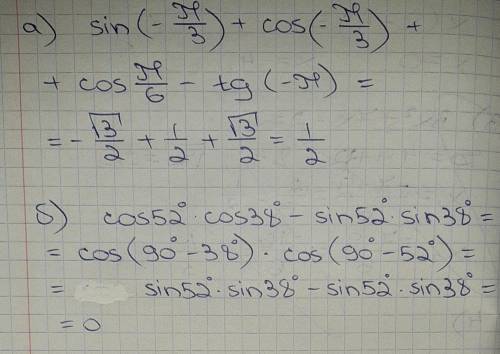 а) sin(-π/3) + cos(-π/3) +
+ cos π/6 - tg(-π) =
= -√3/2 + 1/2 + √3/2 = 1/2
б) cos52°·cos38° - sin52°·sin38° =
= cos(90°-38°)·cos(90°-52°) =
= sin52°·sin38° - sin52°·sin38° =
= 0